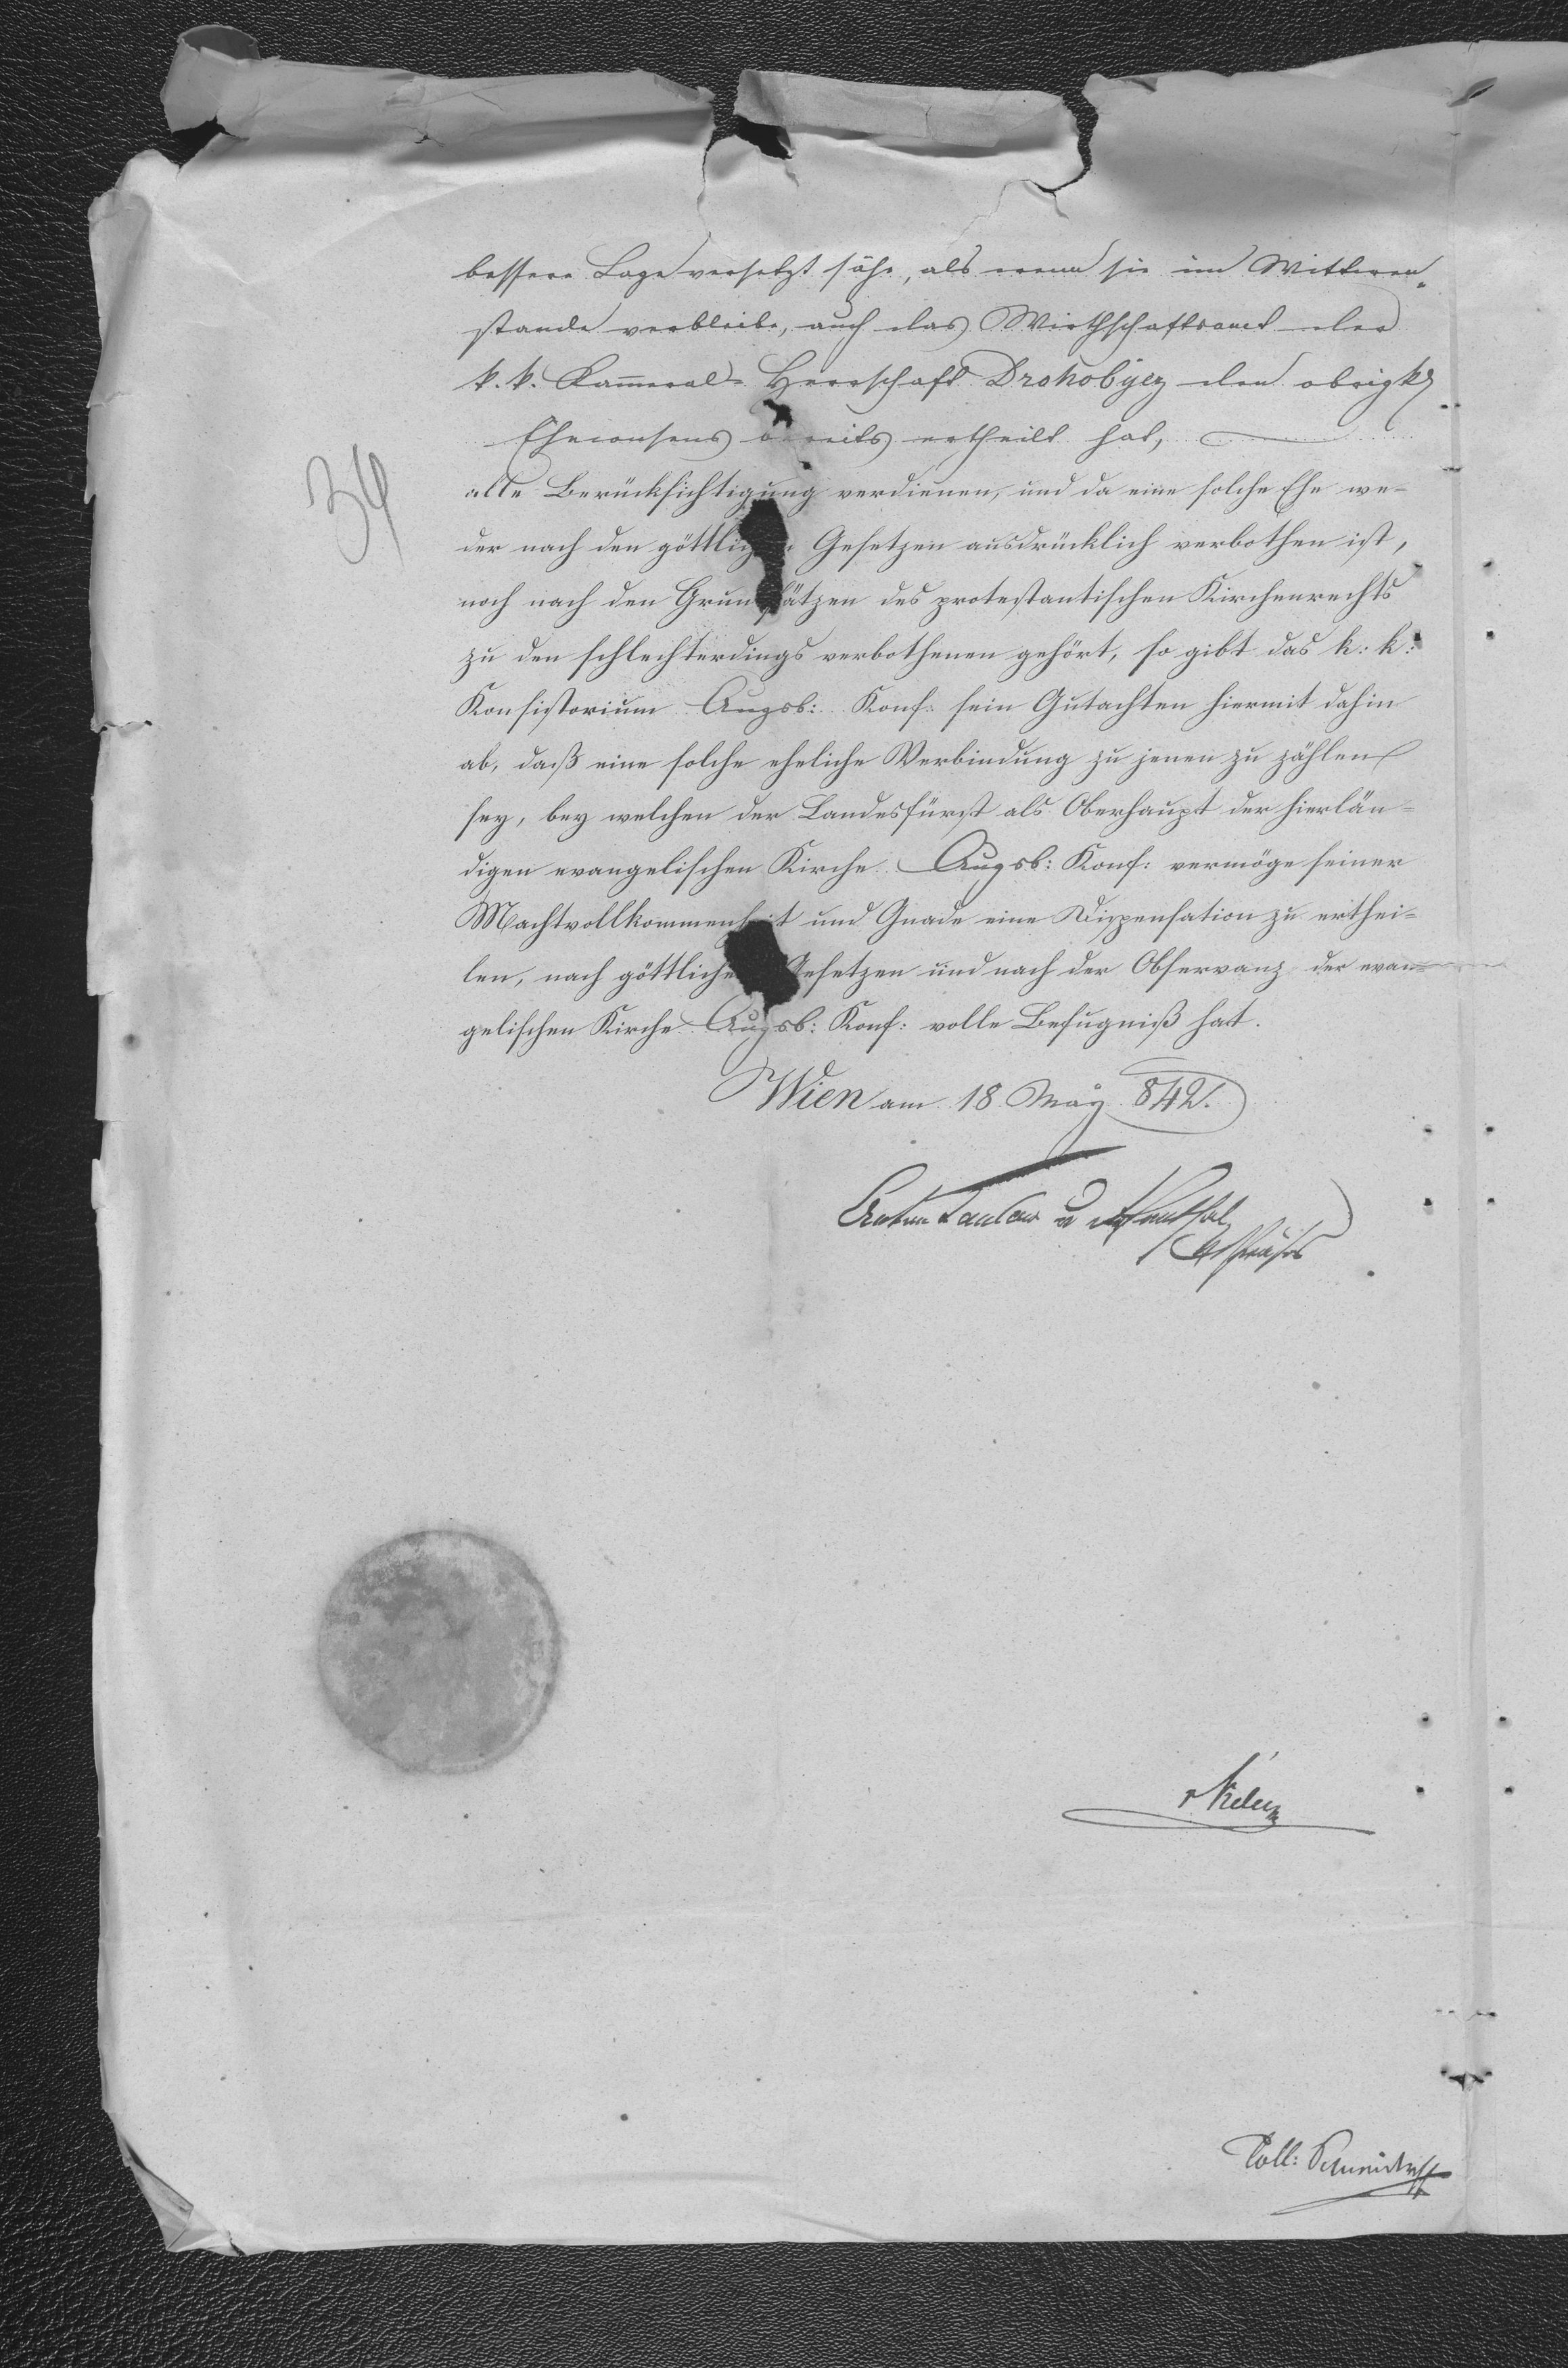 bessere Lage versetzt sähe, als wenn sie im Wittwen„
stande verbleibe, auch das Wirthschaftsamt der
k. k. Kameral-Herrschaft Drohobycz den obrigk
Eheconsens bereits ertheilt hat,
34
alle Berücksichtigung verdienen, und da eine solche Ehe we-
der nach den göttlichen Gesetzen ausdrücklich verbothen ist,
noch nach den Grundsätzen des protestantischen Kirchenrechts
zu den schlechterdings verbothenen gehört, so gibt das k: k:
Konsistorium Augsb: Konf: sein Gutachten hiermit dahin
ab, daß eine solche eheliche Verbindung zu jenen zu zählen
sey, bey welchen der Landesfürst als Oberhaupt der hierlän-
digen evangelischen Kirche Augsb: Konf: vermöge seiner
Machtvollkommenheit und Gnade eine Dispensation zu erthei-
len, nach göttlichen Gesetzen und nach der Observanz der evan-
gelischen Kirche Augsb: Konf: volle Befugniß hat.
Wien am 18 May 842.
Coll: